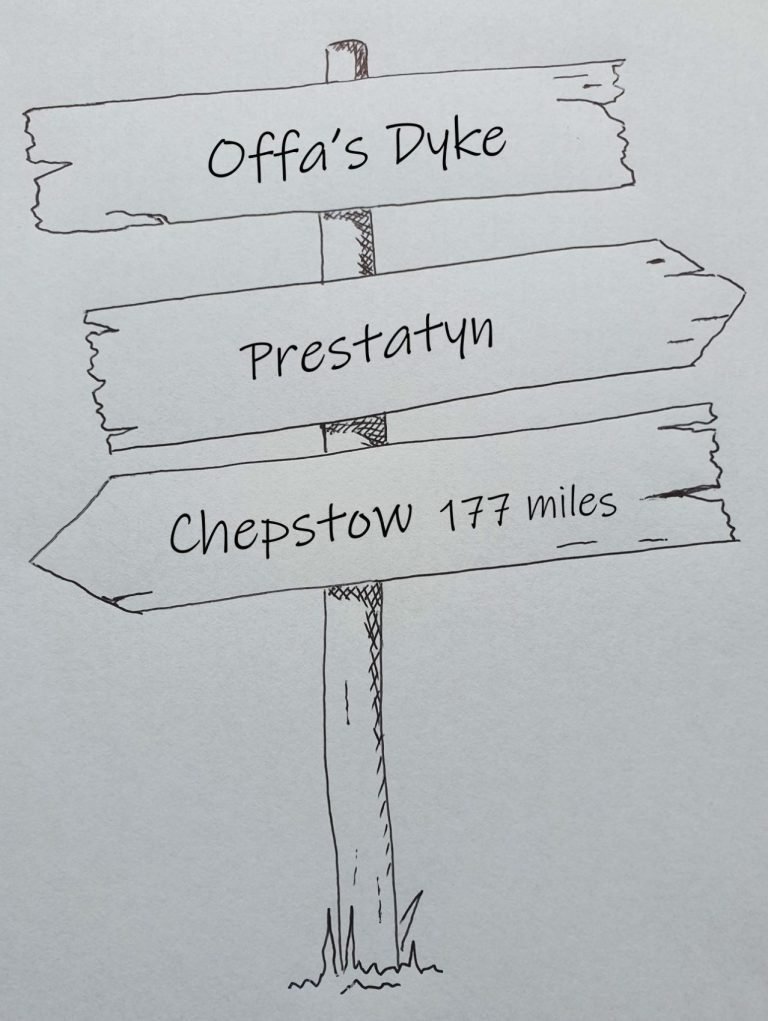 Offa's Dyke
Prestatyn
Chepstow 177 miles